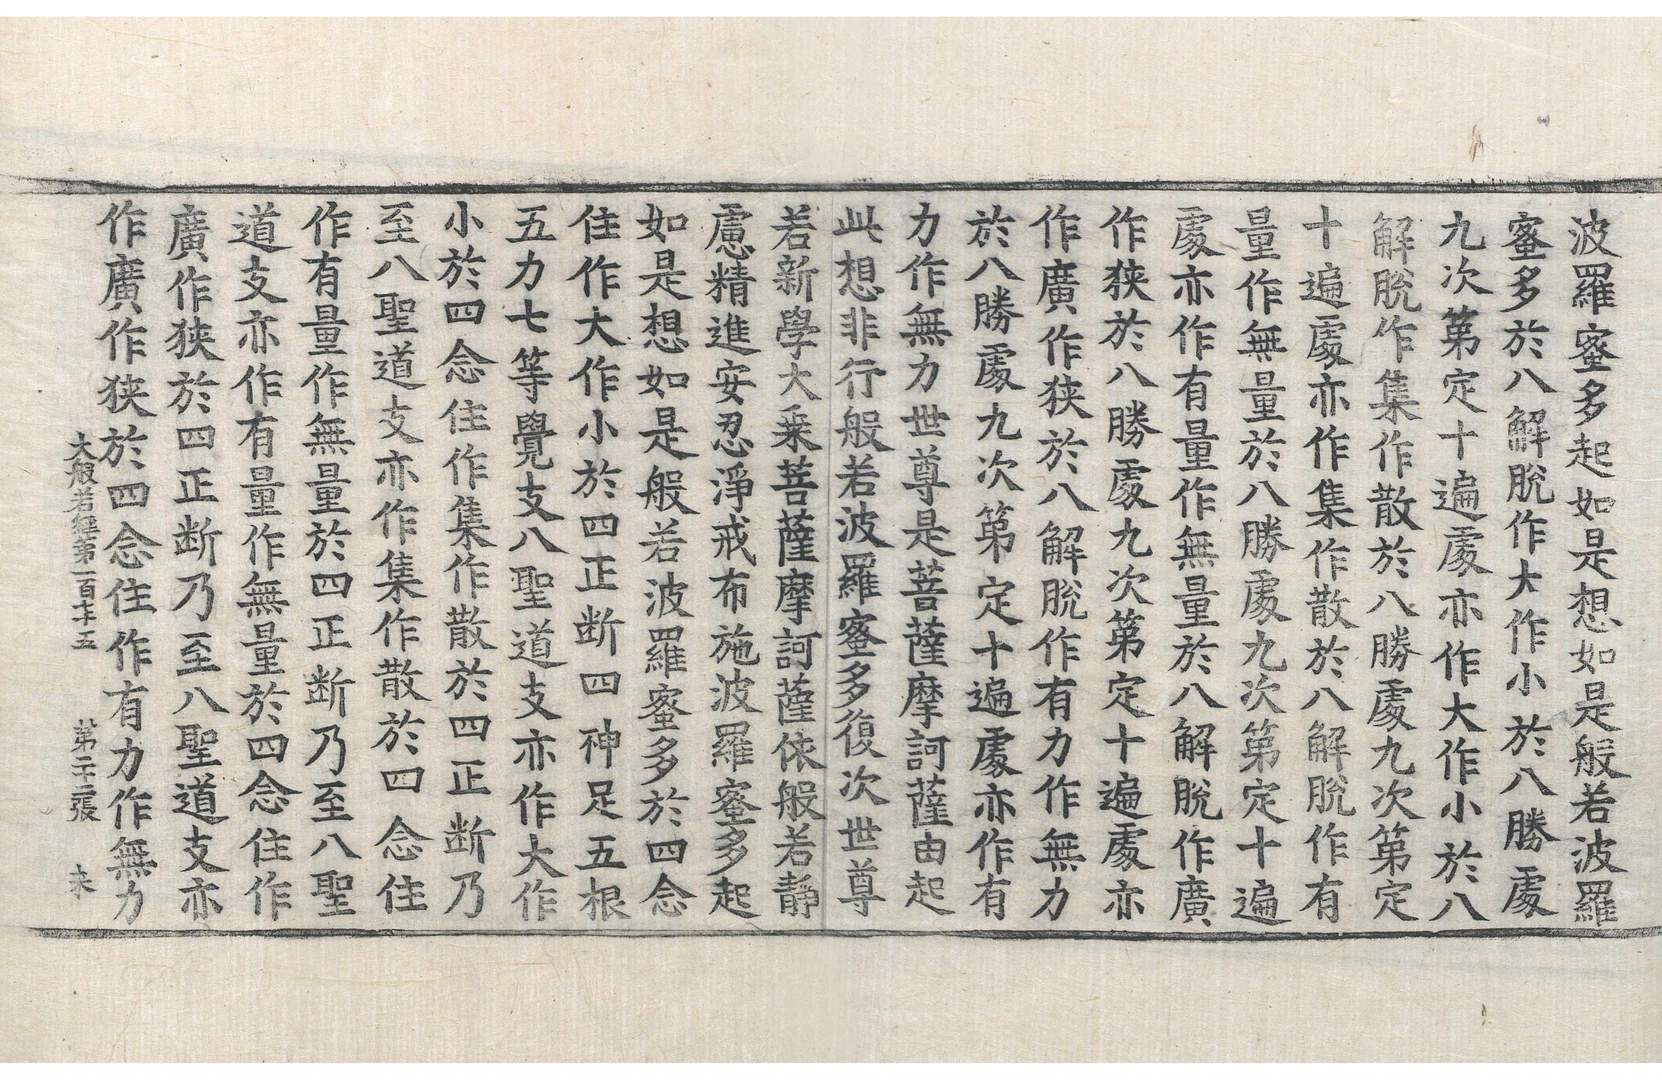 波羅蜜多起如是想如是般若波羅
蜜多於八解脫作大作小於八勝處
九次第定十遍處亦作大作小於八
解脫作集作散於八勝處九次第定
十遍處亦作集作散於八解脫作有
量作無量於八勝處九次第定十遍
處亦作有量作無量於八解脫作廣
作狹於八勝處九次第定十遍處亦
作廣作狹於八解脫作有力作無力
於八勝處九次第定十遍處亦作有
力作無力世尊是菩薩摩訶薩由起
此想非行般若波羅蜜多復次世尊
若新學大乘菩薩摩訶薩依般若靜
慮精進安忍淨戒布施波羅蜜多起
如是想如是般若波羅蜜多於四念
住作大作小於四正断四神足五根
五力七等覺支八聖道支亦作大作
小於四念住作集作散於四正断乃
至八聖道支亦作集作散於四念住
作有量作無量於四正断乃至八聖
道支亦作有量作無量於四念住作
廣作狹於四正断乃至八聖道支亦
作廣作狹於四念住作有力作無力
大般若經第一百七十五 第 張 来